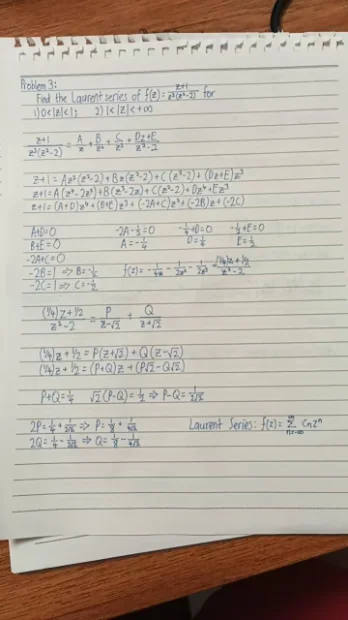 Problem 3:
Find the Laurent series of f(z) = (z+1)/(z³(z²-2)) for
1) 0<|z|<1; 2) 1<|z|<+∞
(z+1)/(z³(z²-2)) = A/z + B/z² + C/z³ + (Dz+E)/(z²-2)
z+1 = Az²(z²-2) + Bz(z²-2) + C(z²-2) + (Dz+E)z³
z+1 = A(z⁴-2z²) + B(z³-2z) + C(z²-2) + Dz⁴ + Ez³
z+1 = (A+D)z⁴ + (B+E)z³ + (-2A+C)z² + (-2B)z + (-2C)
A+D=0 -2A-½=0 -¼+D=0 -½+E=0
B+E=0 A=-¼ D=¼ E=½
-2A+C=0
-2B=1 ⇒ B=-½ f(z) = -1/(4z) - 1/(2z²) - 1/(2z³) + ((1/4)z+1/2)/(z²-2)
-2C=1 ⇒ C=-½
((1/4)z+1/2)/(z²-2) = P/(z-√2) + Q/(z+√2)
(1/4)z + 1/2 = P(z+√2) + Q(z-√2)
(1/4)z + 1/2 = (P+Q)z + (P√2-Q√2)
P+Q=¼ √2(P-Q)=½ ⇒ P-Q=1/(2√2)
2P=¼+1/(2√2) ⇒ P=⅛+1/(4√2) Laurent Series: f(z) = ∑ n=-∞ ∞ cₙzⁿ
2Q=¼-1/(2√2) ⇒ Q=⅛-1/(4√2)